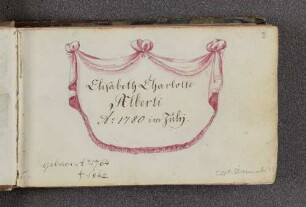 2
Elisabeth Charlotte
Alberti
A: 1780 im July.
geboren A° 1764